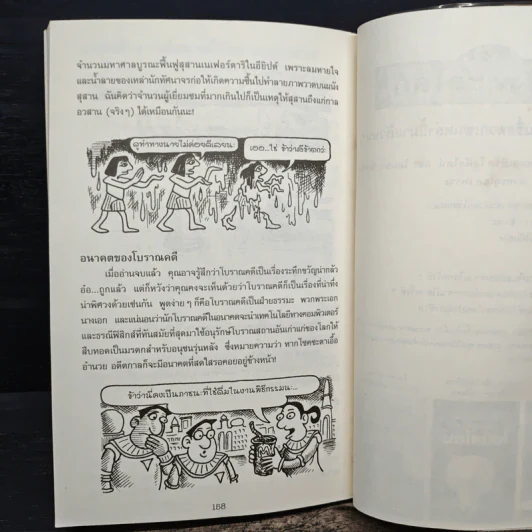 จำนวนมหาศาลบูรณะฟื้นฟูสุสานเนเฟอร์ตาริในอียิปต์ เพราะลมหายใจ
และน้ำลายของเหล่านักทัศนาจรก่อให้เกิดความชื้นไปทำลายภาพวาดบนผนัง
สุสาน ฉันคิดว่าจำนวนผู้เยี่ยมชมที่มากเกินไปก็เป็นเหตุให้สุสานถึงแก่กาล
อวสาน (จริงๆ) ได้เหมือนกันนะ!
ดูท่าทางนายไม่ค่อยดีเลยนะ
เออ...ใช่ ข้าว่าสีข้าตกว่ะ
อนาคตของโบราณคดี
เมื่ออ่านจบแล้ว คุณอาจรู้สึกว่าโบราณคดีเป็นเรื่องระทึกขวัญน่ากลัว
อ๋อ...ถูกแล้ว แต่ก็หวังว่าคุณคงจะเห็นด้วยว่าโบราณคดีก็เป็นเรื่องที่น่าทึ่ง
น่าพิศวงด้วยเช่นกัน พูดง่ายๆ ก็คือโบราณคดีเป็นฝ่ายธรรมะ พวกพระเอก
นางเอก และแน่นอนว่านักโบราณคดีในอนาคตจะนำเทคโนโลยีทางคอมพิวเตอร์
และธรณีฟิสิกส์ที่ทันสมัยที่สุดมาใช้อนุรักษ์โบราณสถานอันเก่าแก่ของโลกให้
สืบทอดเป็นมรดกสำหรับอนุชนรุ่นหลัง ซึ่งหมายความว่า หากโชคชะตาเอื้อ
อำนวย อดีตกาลก็จะมีอนาคตที่สดใสรอคอยอยู่ข้างหน้า!
ข้าว่านี่คงเป็นภาชนะที่ใช้ดื่มในงานพิธีกรรมนะ...
158